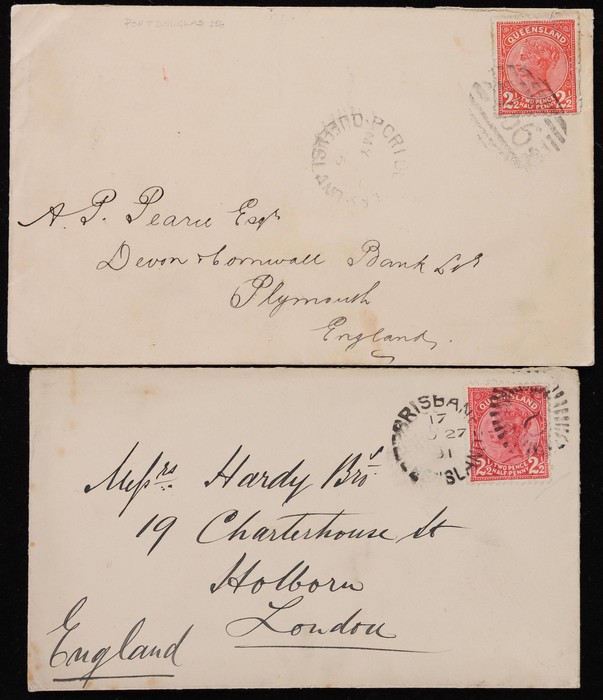 PORT DOUGLAS
QUEENSLAND
2½ TWO PENCE HALF PENNY 2½
QUEENSLAND
MY
6
A. P. Pearce Esqr
Devon & Cornwall Bank Ld
Plymouth
England.
BRISBANE
17
27
91
QUEENSLAND
QUEENSLAND
2½ TWO PENCE HALF PENNY 2½
Messrs Hardy Bros
19 Charterhouse St
Holborn
London
England